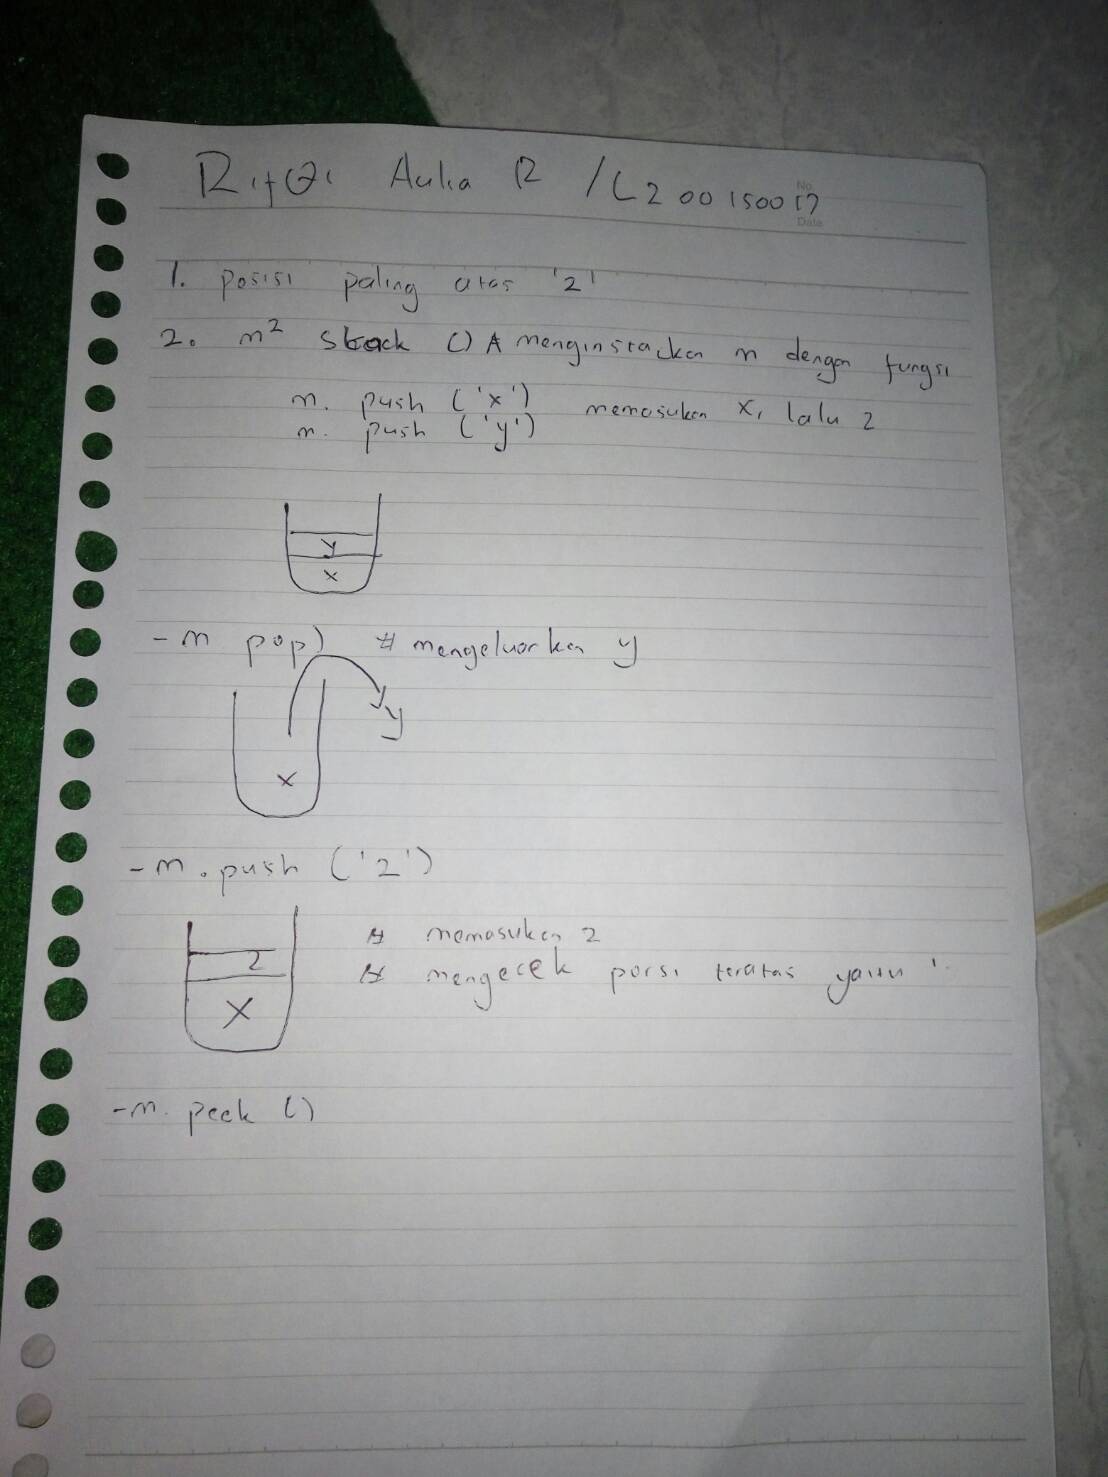 Rifqi Aulia R / L200150017
No.
Date
1. posisi paling atas '2'
2. m² stack () # menginstackan m dengan fungsi
m. push ('x') memasukan x, lalu 2
m. push ('y')
y
x
- m pop) # mengeluarkan y
y
x
- m. push ('2')
# memasukan 2
2
# mengecek porsi teratas yaitu '
x
- m. peek ()